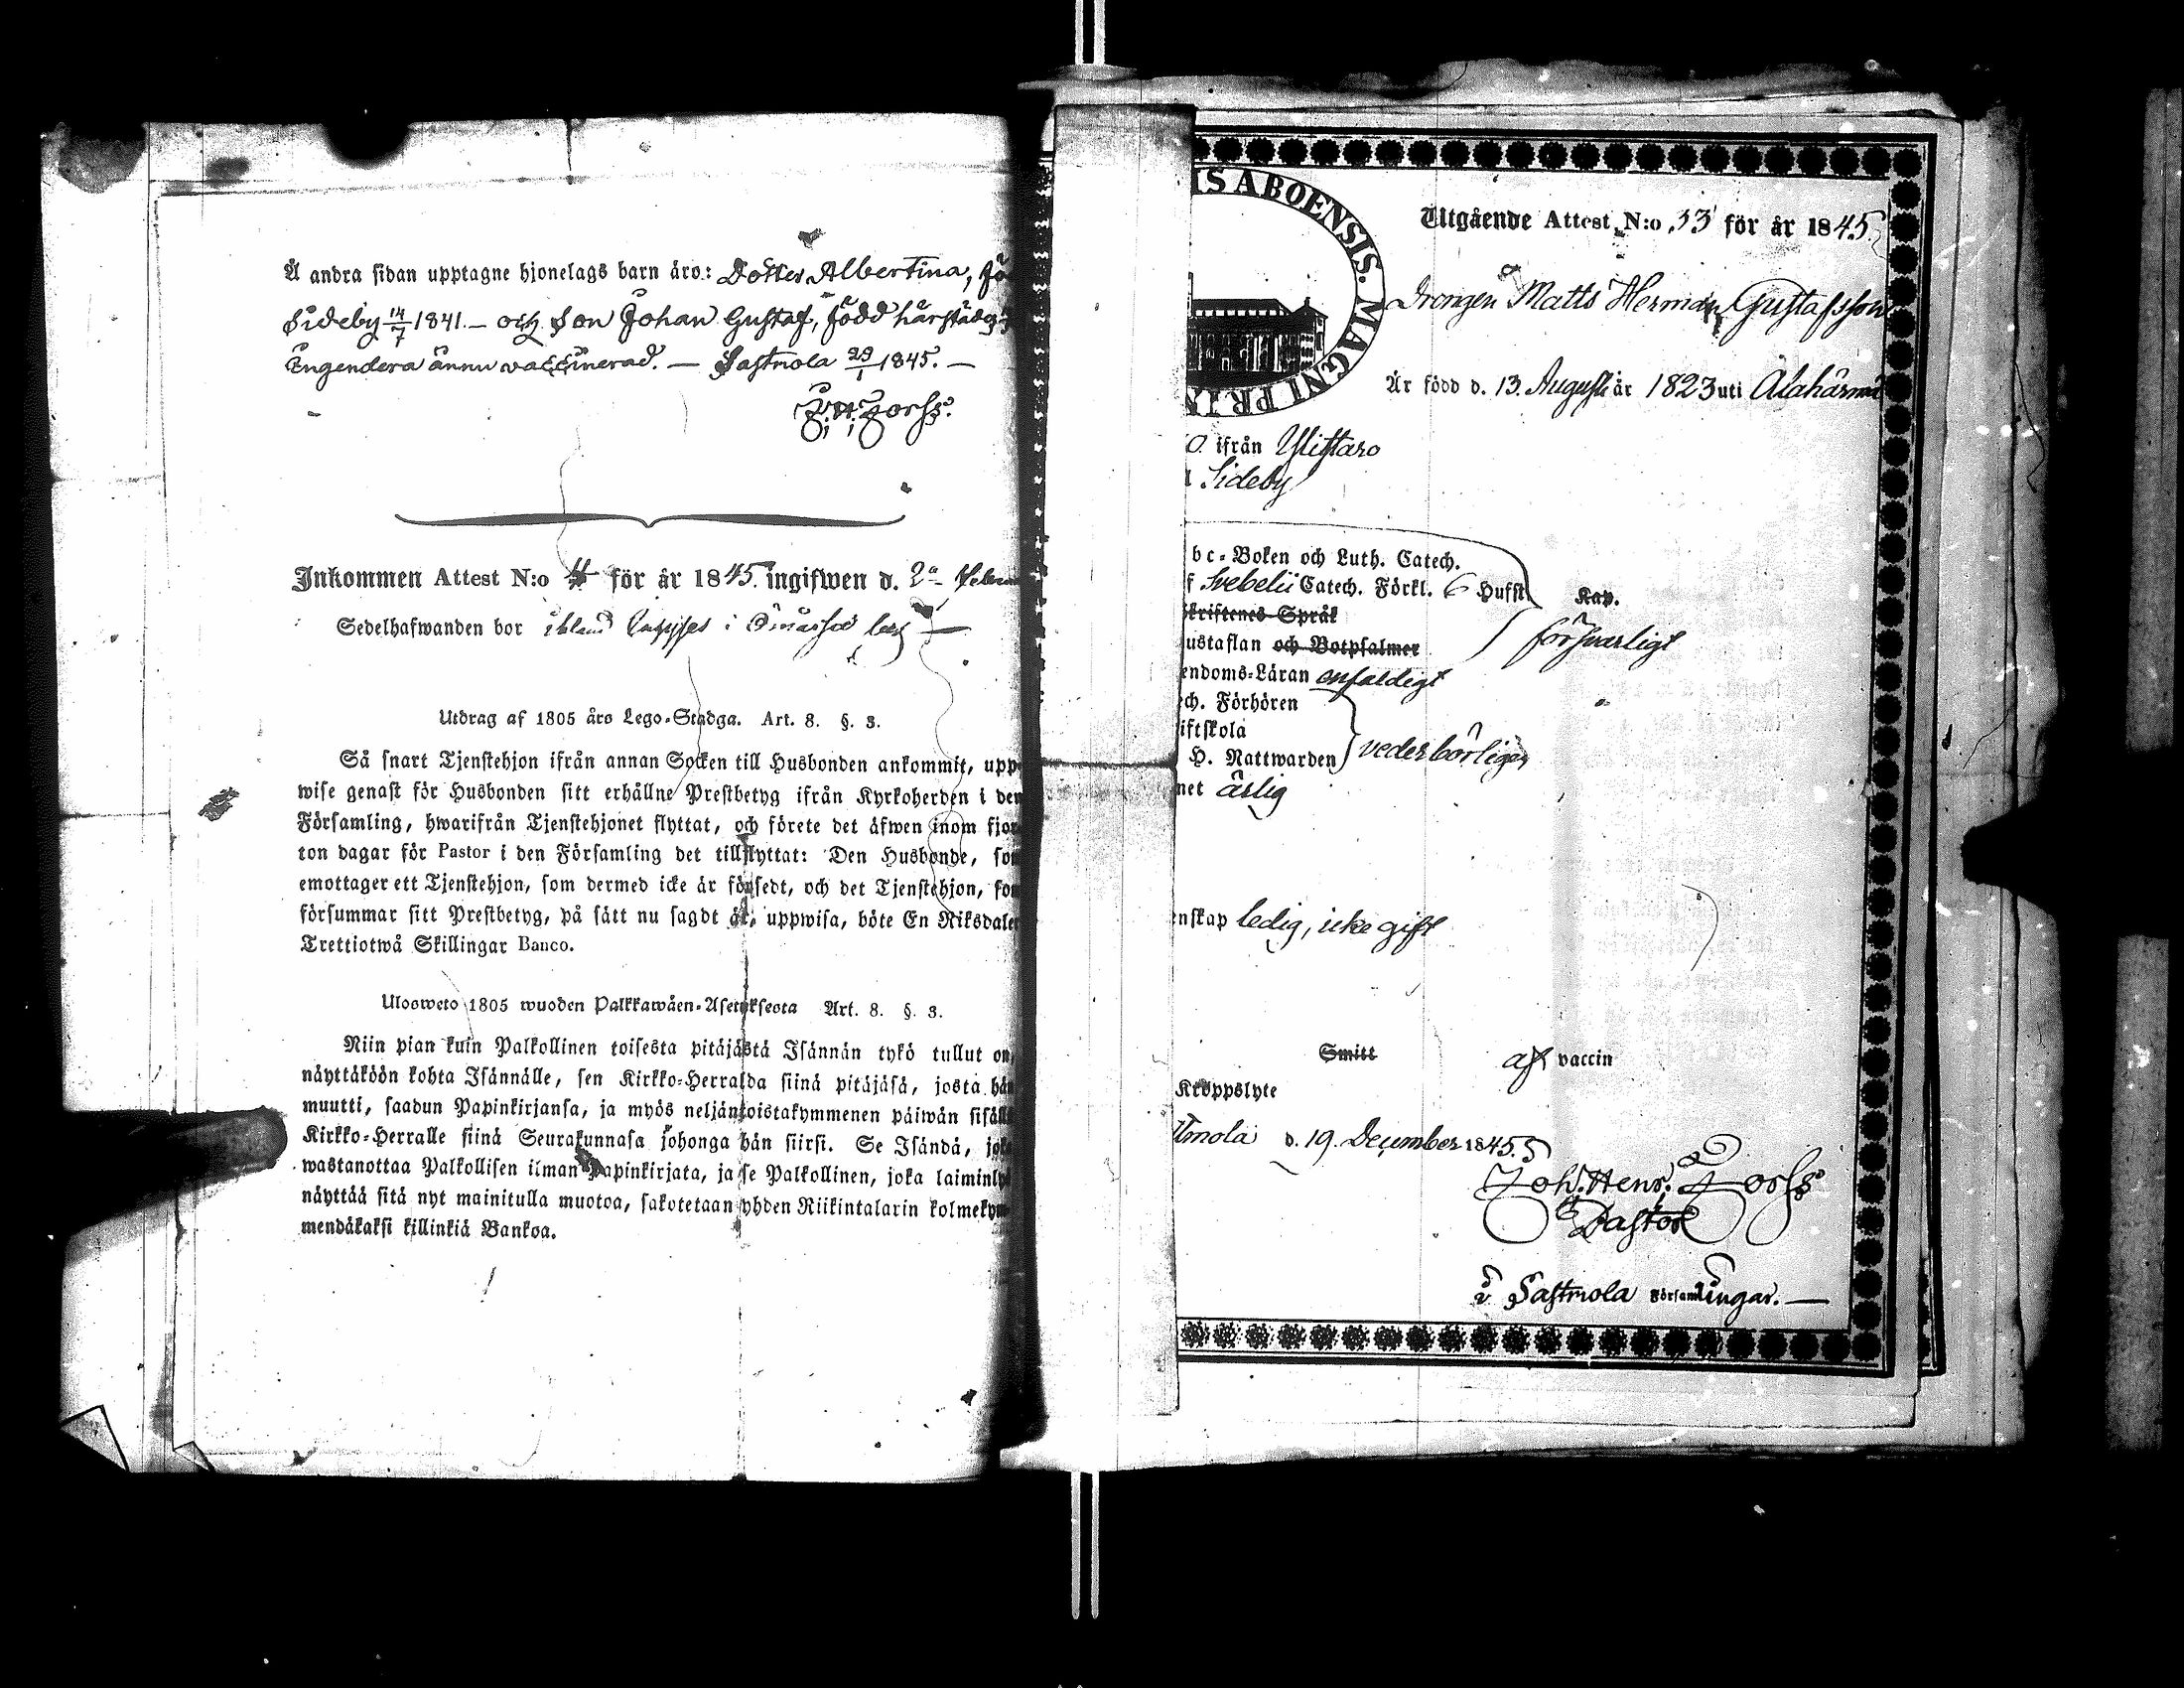 Å andra sidan upptagne hjonelags barn äro: Dotter Albertina, fö
Sideby 14/7 1841. — och Son Johan Gustaf, född härstädes
Ingendera ännu vaccinerad. — Sastmola 29/1 1845. —
J. H. Forss.
Inkommen Attest N:o 4 för år 1845 ingifwen d. 2a Febru
Sedelhafwanden bor ibland i Ömossa
Utdrag af 1805 års Lego-Stadga. Art. 8. §. 3.
Så snart Tjenstehjon ifrån annan Socken till Husbonden ankommit, upp
wise genast för Husbonden sitt erhållne Prestbetyg ifrån Kyrkoherden i den
Församling, hwarifrån Tjenstehjonet flyttat, och förete det äfwen inom fjor
ton dagar för Pastor i den Församling det tillflyttat: Den Husbonde, som
emottager ett Tjenstehjon, som dermed icke är försedt, och det Tjenstehjon, som
försummar sitt Prestbetyg, på sätt nu sagdt är, uppwisa, böte En Riksdaler
Trettiotwå Skillingar Banco.
Ulosweto 1805 wuoden Palkkawäen-Asetuksesta Art. 8. §. 3.
Niin pian kuin Palkollinen toisesta pitäjästä Isännän tykö tullut on,
näyttäköön kohta Isännälle, sen Kirkko-Herralda siinä pitäjäsä, josta hän
muutti, saadun Papinkirjansa, ja myös neljäntoistakymmenen päiwän sisällä
Kirkko-Herralle siinä Seurakunnasa johonga hän siirsi. Se Isändä, joka
wastanottaa Palkollisen ilman Papinkirjata, ja se Palkollinen, joka laiminly
näyttää sitä nyt mainitulla muotoa, sakotetaan yhden Riikintalarin kolmekym
mendäkaksi killinkiä Bankoa.
IS ABOENSIS. MAGNI PRIN
Utgående Attest N:o 33 för år 1845
Drengen Matts Herman Gustafsson
Är född d. 13. Augusti år 1823 uti Alahärmä
o. ifrån Ylistaro
Sideby
bc-Boken och Luth. Catech.
f Svebelii Catech. Förkl. 6 Hufst.
Kap.
skriftenes Språk
försvarligt
ustaflan och Botpsalmer
endoms-Läran enfaldigt
ch. Förhören
iftskola
H. Nattwarden vederbörligen
net ärlig
nskap ledig, icke gift
Smitt af vaccin
Kroppslyte
tmola d. 19. December 1845.
Joh. Henr. Forss
Pastor
i Sastmola Församlingar. —